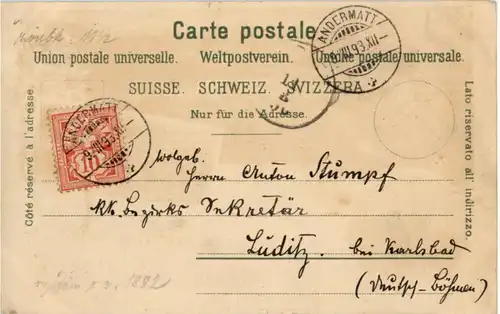 Carte postale.
Union postale universelle. Weltpostverein. Unione postale universale.
SUISSE. SCHWEIZ. SVIZZERA.
Nur für die Adresse.
Côté réservé à l'adresse.
Lato riservato all' indirizzo.
ANDERMATT
ANDERMATT
10
Wolgeb.
Herrn Anton Stumpf
k.k. Bezirks Sekretär
Luditz bei Karlsbad
(Deutsch-Böhmen)